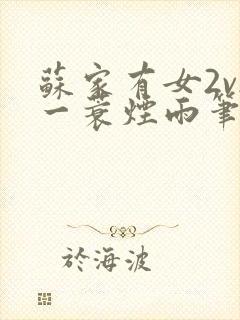 蘇家有女2v
一蓑煙雨筆
於海波